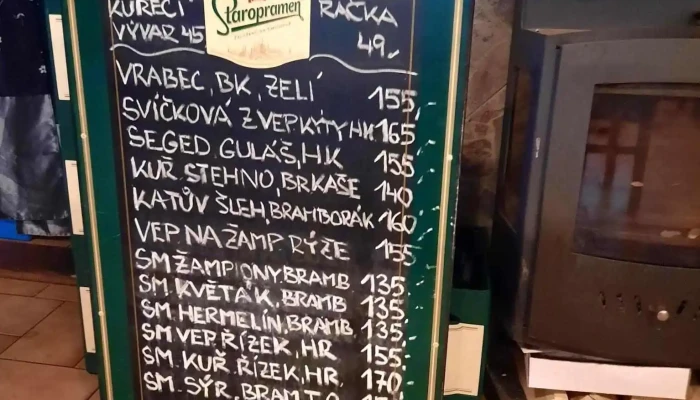 KUŘECÍ
VÝVAR 45
Staropramen
RAČKA
49,-
VRABEC, BK, ZELÍ 155,-
SVÍČKOVÁ Z VEP. KÝTY, HK 165
SEGED. GULÁŠ, H.K 155,-
KUŘ. STEHNO, BR KAŠE 140
KATŮV ŠLEH, BRAMBORÁK 160
VEP. NA ŽAMP. RÝŽE 155
SM ŽAMPIONY, BRAMB 135,-
SM. KVĚTÁK, BRAMB 135,-
SM. HERMELÍN, BRAMB 135,-
SM VEP. ŘÍZEK, HR. 155,-
SM. KUŘ. ŘÍZEK, HR. 170,-
SM. SÝR, BRAM. T.O.